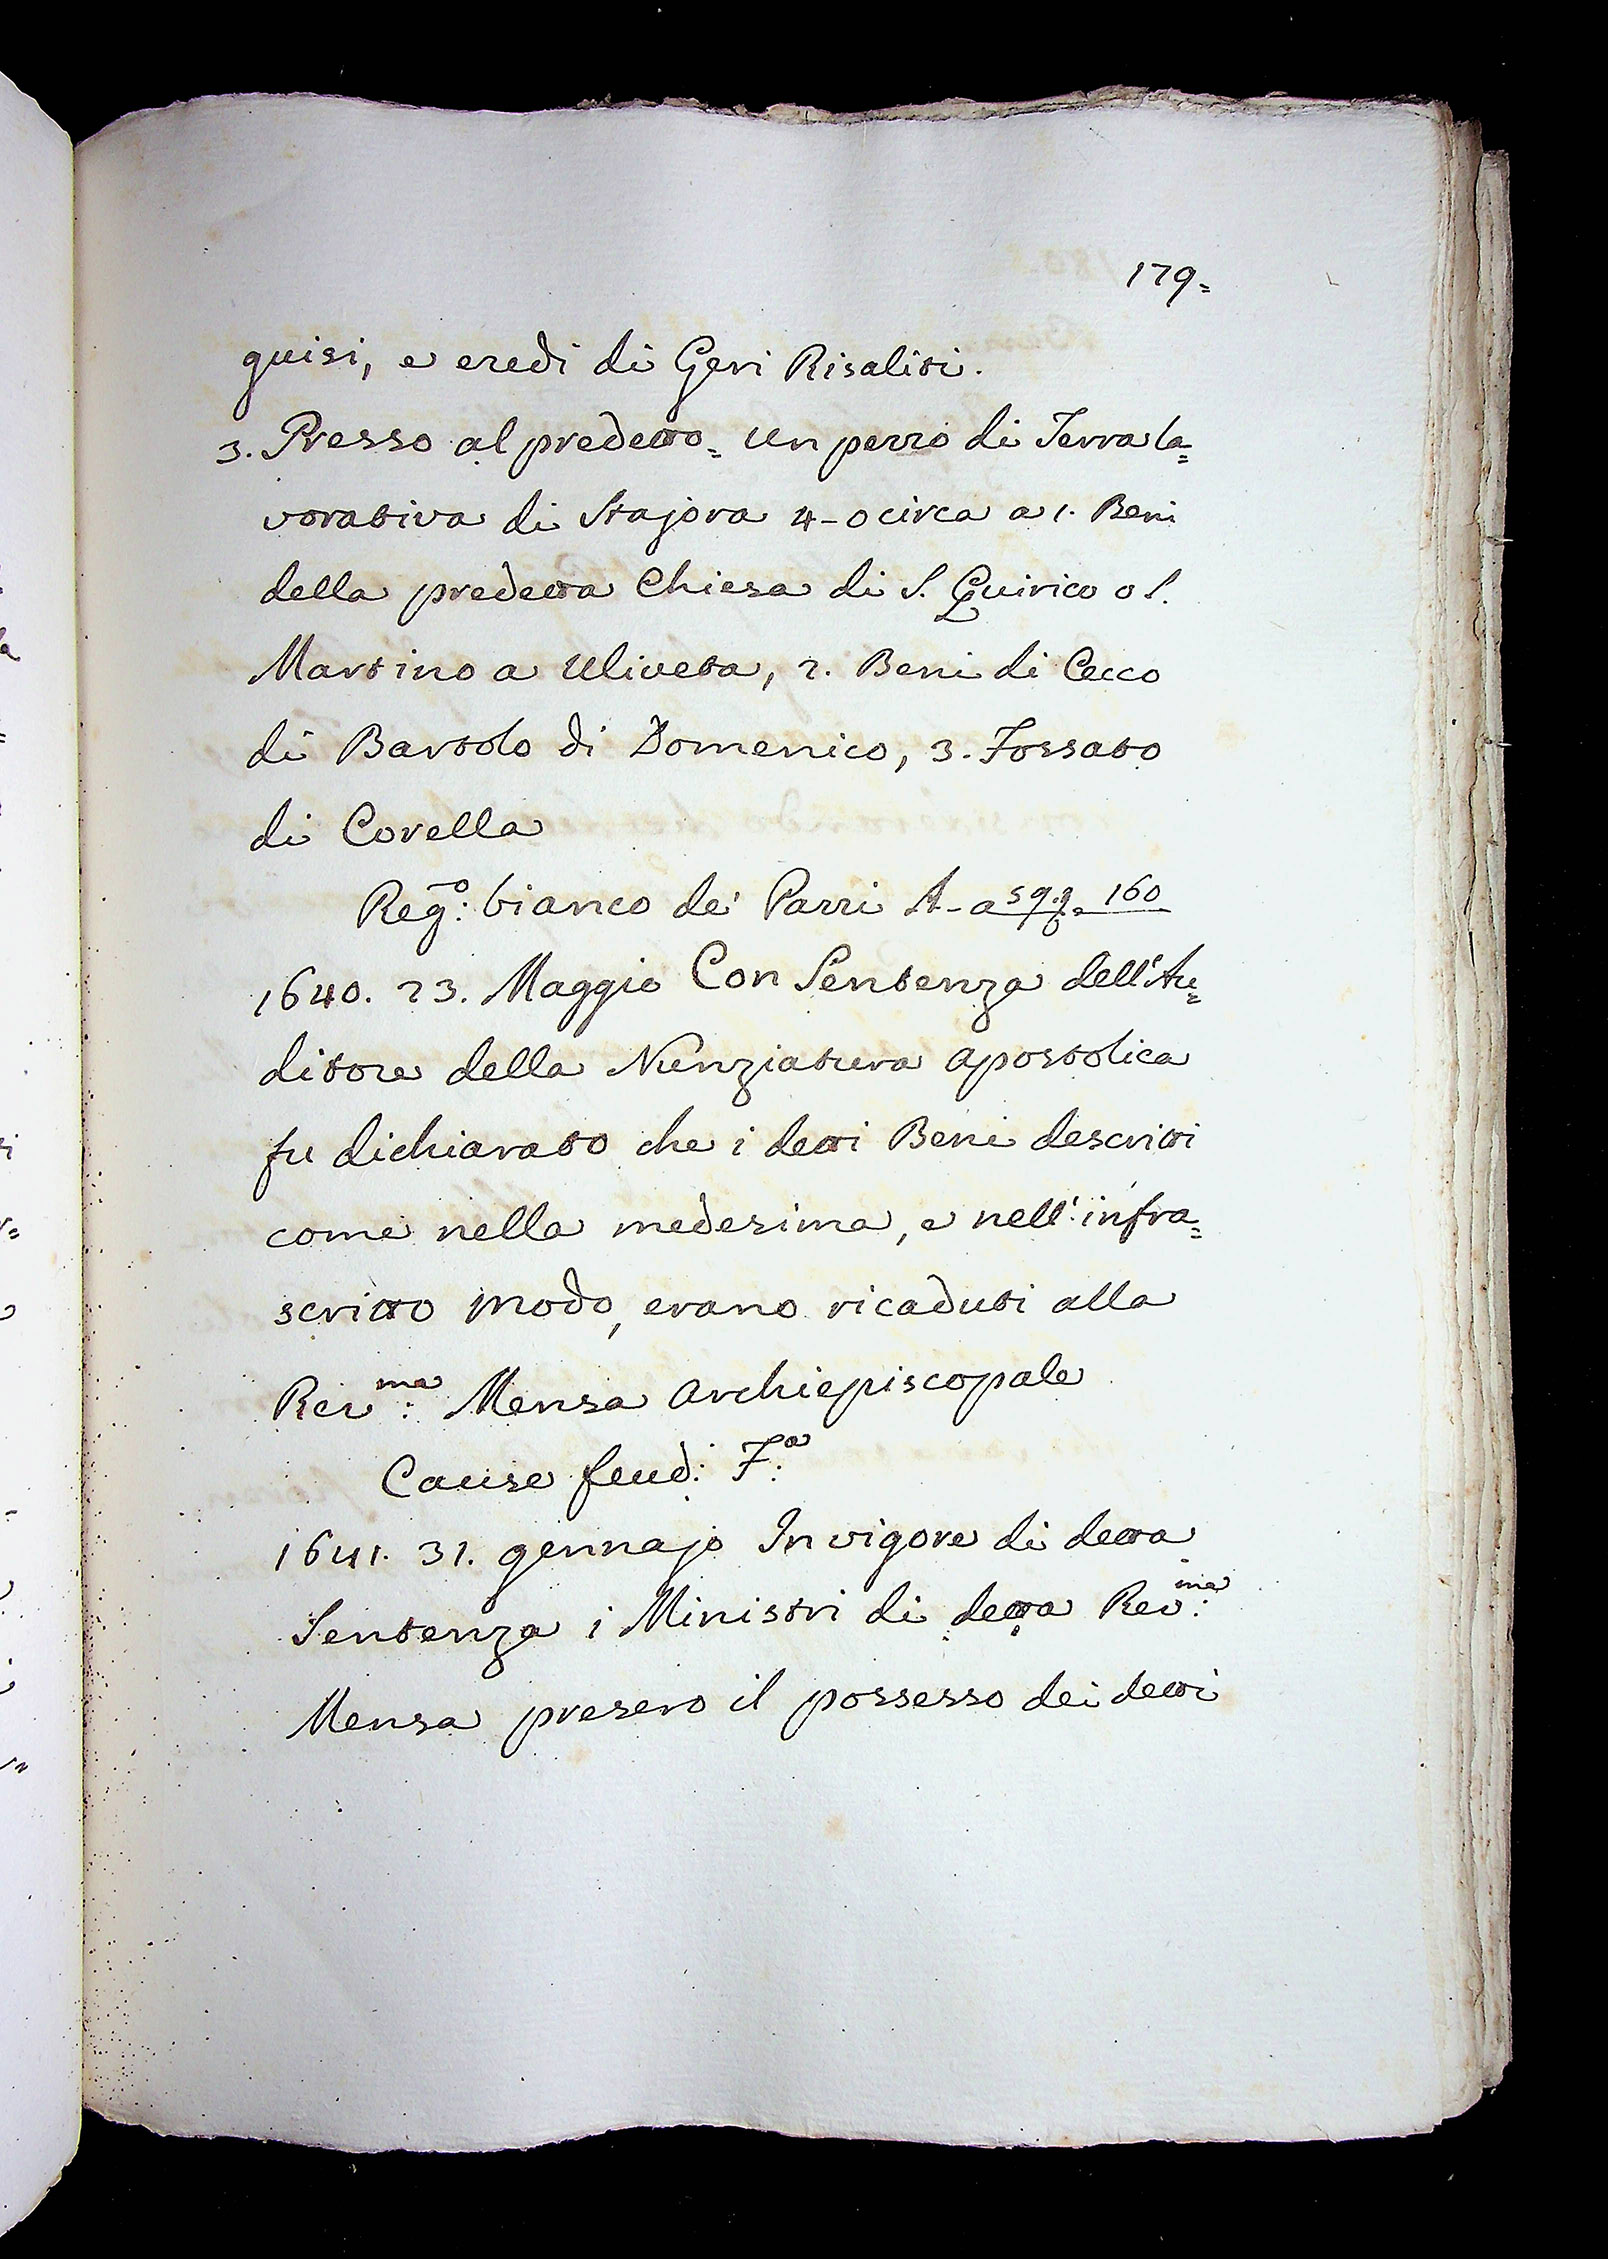 179=
guisi, e eredi di Geri Risaliti.
3. Presso al predetto= Un pezzo di Terra la=
vorativa di Stajora 4-0 circa a 1. Beni
della predetta Chiesa di S. Quirico o S.
Martino a Uliveta, 2. Beni di Cecco
di Bartolo di Domenico, 3. Fossato
di Corella
Reg.o: bianco de' Pazzi A- a 59. 160
1640. 23. Maggio Con Sentenza dell'Au=
ditore della Nunziatura Apostolica
fu dichiarato che i detti Beni descritti
come nella medesima, e nell'infra=
scritto modo, erano ricaduti alla
Rev.ma: Mensa Archiepiscopale
Cause feud: F.a:
1641. 31. gennajo In vigore di detta
Sentenza i Ministri di detta Rev.ma:
Mensa presero il possesso dei detti